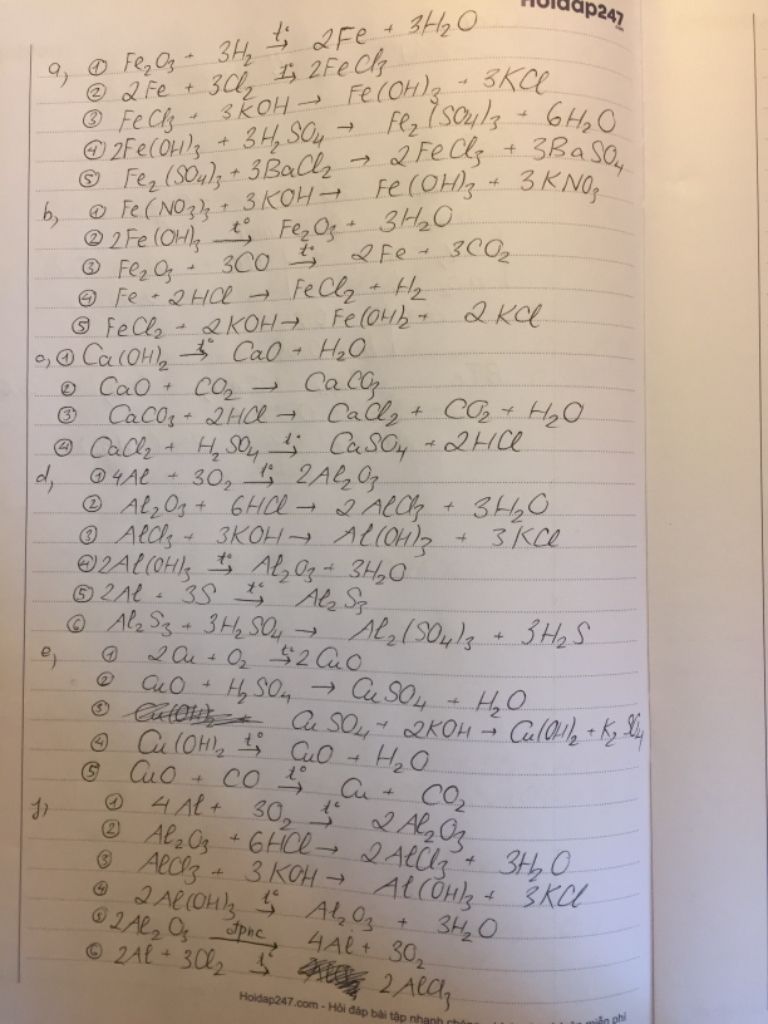 Hoidap247
a, ① Fe₂O₃ + 3H₂ →(t°) 2Fe + 3H₂O
② 2Fe + 3Cl₂ →(t°) 2FeCl₃
③ FeCl₃ + 3KOH → Fe(OH)₃ + 3KCl
④ 2Fe(OH)₃ + 3H₂SO₄ → Fe₂(SO₄)₃ + 6H₂O
⑤ Fe₂(SO₄)₃ + 3BaCl₂ → 2FeCl₃ + 3BaSO₄
b, ① Fe(NO₃)₃ + 3KOH → Fe(OH)₃ + 3KNO₃
② 2Fe(OH)₃ →(t°) Fe₂O₃ + 3H₂O
③ Fe₂O₃ + 3CO →(t°) 2Fe + 3CO₂
④ Fe + 2HCl → FeCl₂ + H₂
⑤ FeCl₂ + 2KOH → Fe(OH)₂ + 2KCl
c, ① Ca(OH)₂ →(t°) CaO + H₂O
② CaO + CO₂ → CaCO₃
③ CaCO₃ + 2HCl → CaCl₂ + CO₂ + H₂O
④ CaCl₂ + H₂SO₄ →(t°) CaSO₄ + 2HCl
d, ① 4Al + 3O₂ →(t°) 2Al₂O₃
② Al₂O₃ + 6HCl → 2AlCl₃ + 3H₂O
③ AlCl₃ + 3KOH → Al(OH)₃ + 3KCl
④ 2Al(OH)₃ →(t°) Al₂O₃ + 3H₂O
⑤ 2Al + 3S →(t°) Al₂S₃
⑥ Al₂S₃ + 3H₂SO₄ → Al₂(SO₄)₃ + 3H₂S
e, ① 2Cu + O₂ →(t°) 2CuO
② CuO + H₂SO₄ → CuSO₄ + H₂O
③ CuSO₄ + 2KOH → Cu(OH)₂ + K₂SO₄
④ Cu(OH)₂ →(t°) CuO + H₂O
⑤ CuO + CO →(t°) Cu + CO₂
f, ① 4Al + 3O₂ →(t°) 2Al₂O₃
② Al₂O₃ + 6HCl → 2AlCl₃ + 3H₂O
③ AlCl₃ + 3KOH → Al(OH)₃ + 3KCl
④ 2Al(OH)₃ →(t°) Al₂O₃ + 3H₂O
⑤ 2Al₂O₃ →(đpnc) 4Al + 3O₂
⑥ 2Al + 3Cl₂ →(t°) 2AlCl₃
Hoidap247.com - Hỏi đáp bài tập nhanh miễn phí